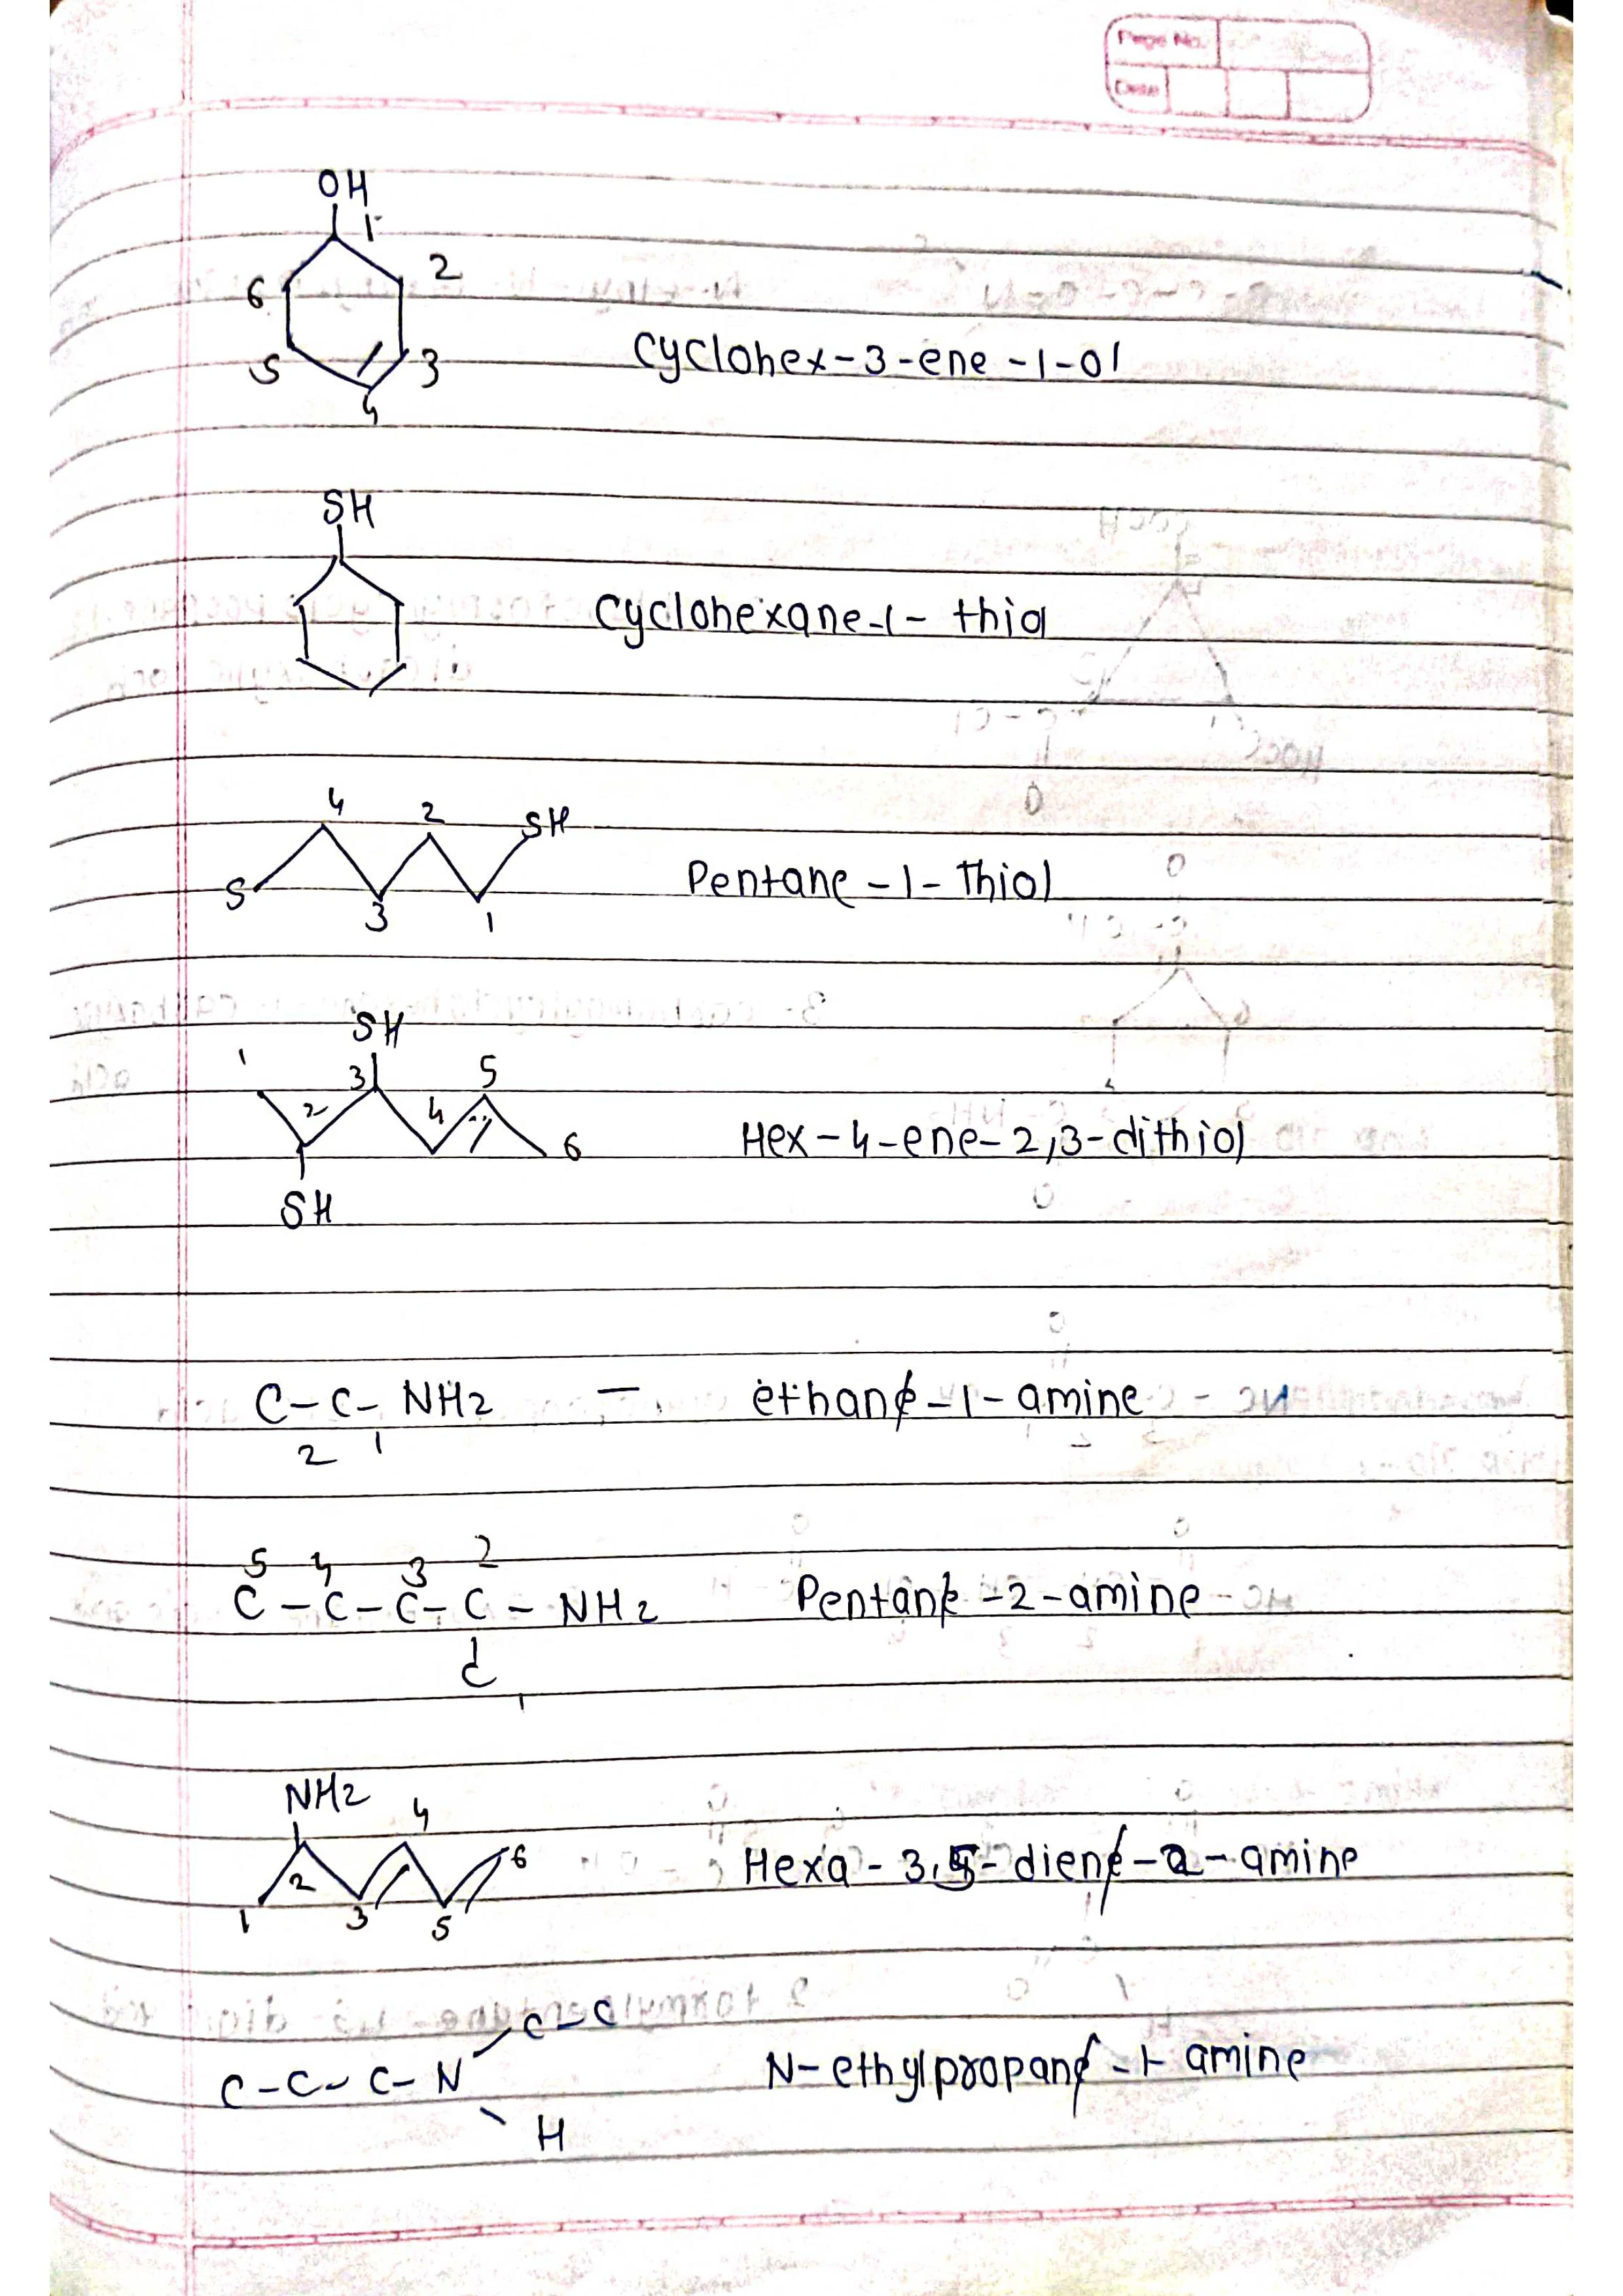 Page No.
Date
OH
1
2
6
Cyclohex-3-ene-1-ol
5
3
4
SH
Cyclohexane-1-thiol
4 2 SH
Pentane-1-Thiol
5 3 1
SH
1 3 5
2 4
6 Hex-4-ene-2,3-dithiol
SH
C-C-NH2 — ethane-1-amine
2 1
5 4 3 2
C-C-C-C-NH2 Pentane-2-amine
C
1
NH2 4
6
2 Hexa-3,5-diene-2-amine
1 3 5
C-C
C-C-C-N N-ethylpropane-1-amine
H